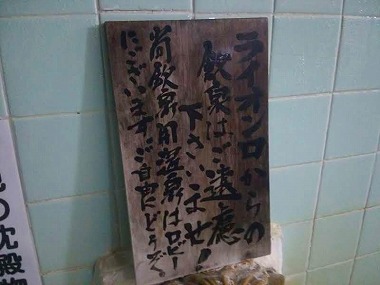 ライオン口からの
飲泉はご遠慮
下さいませ!
尚飲泉用温泉はロビー
にございます ご自由にどうぞ
の沈殿物